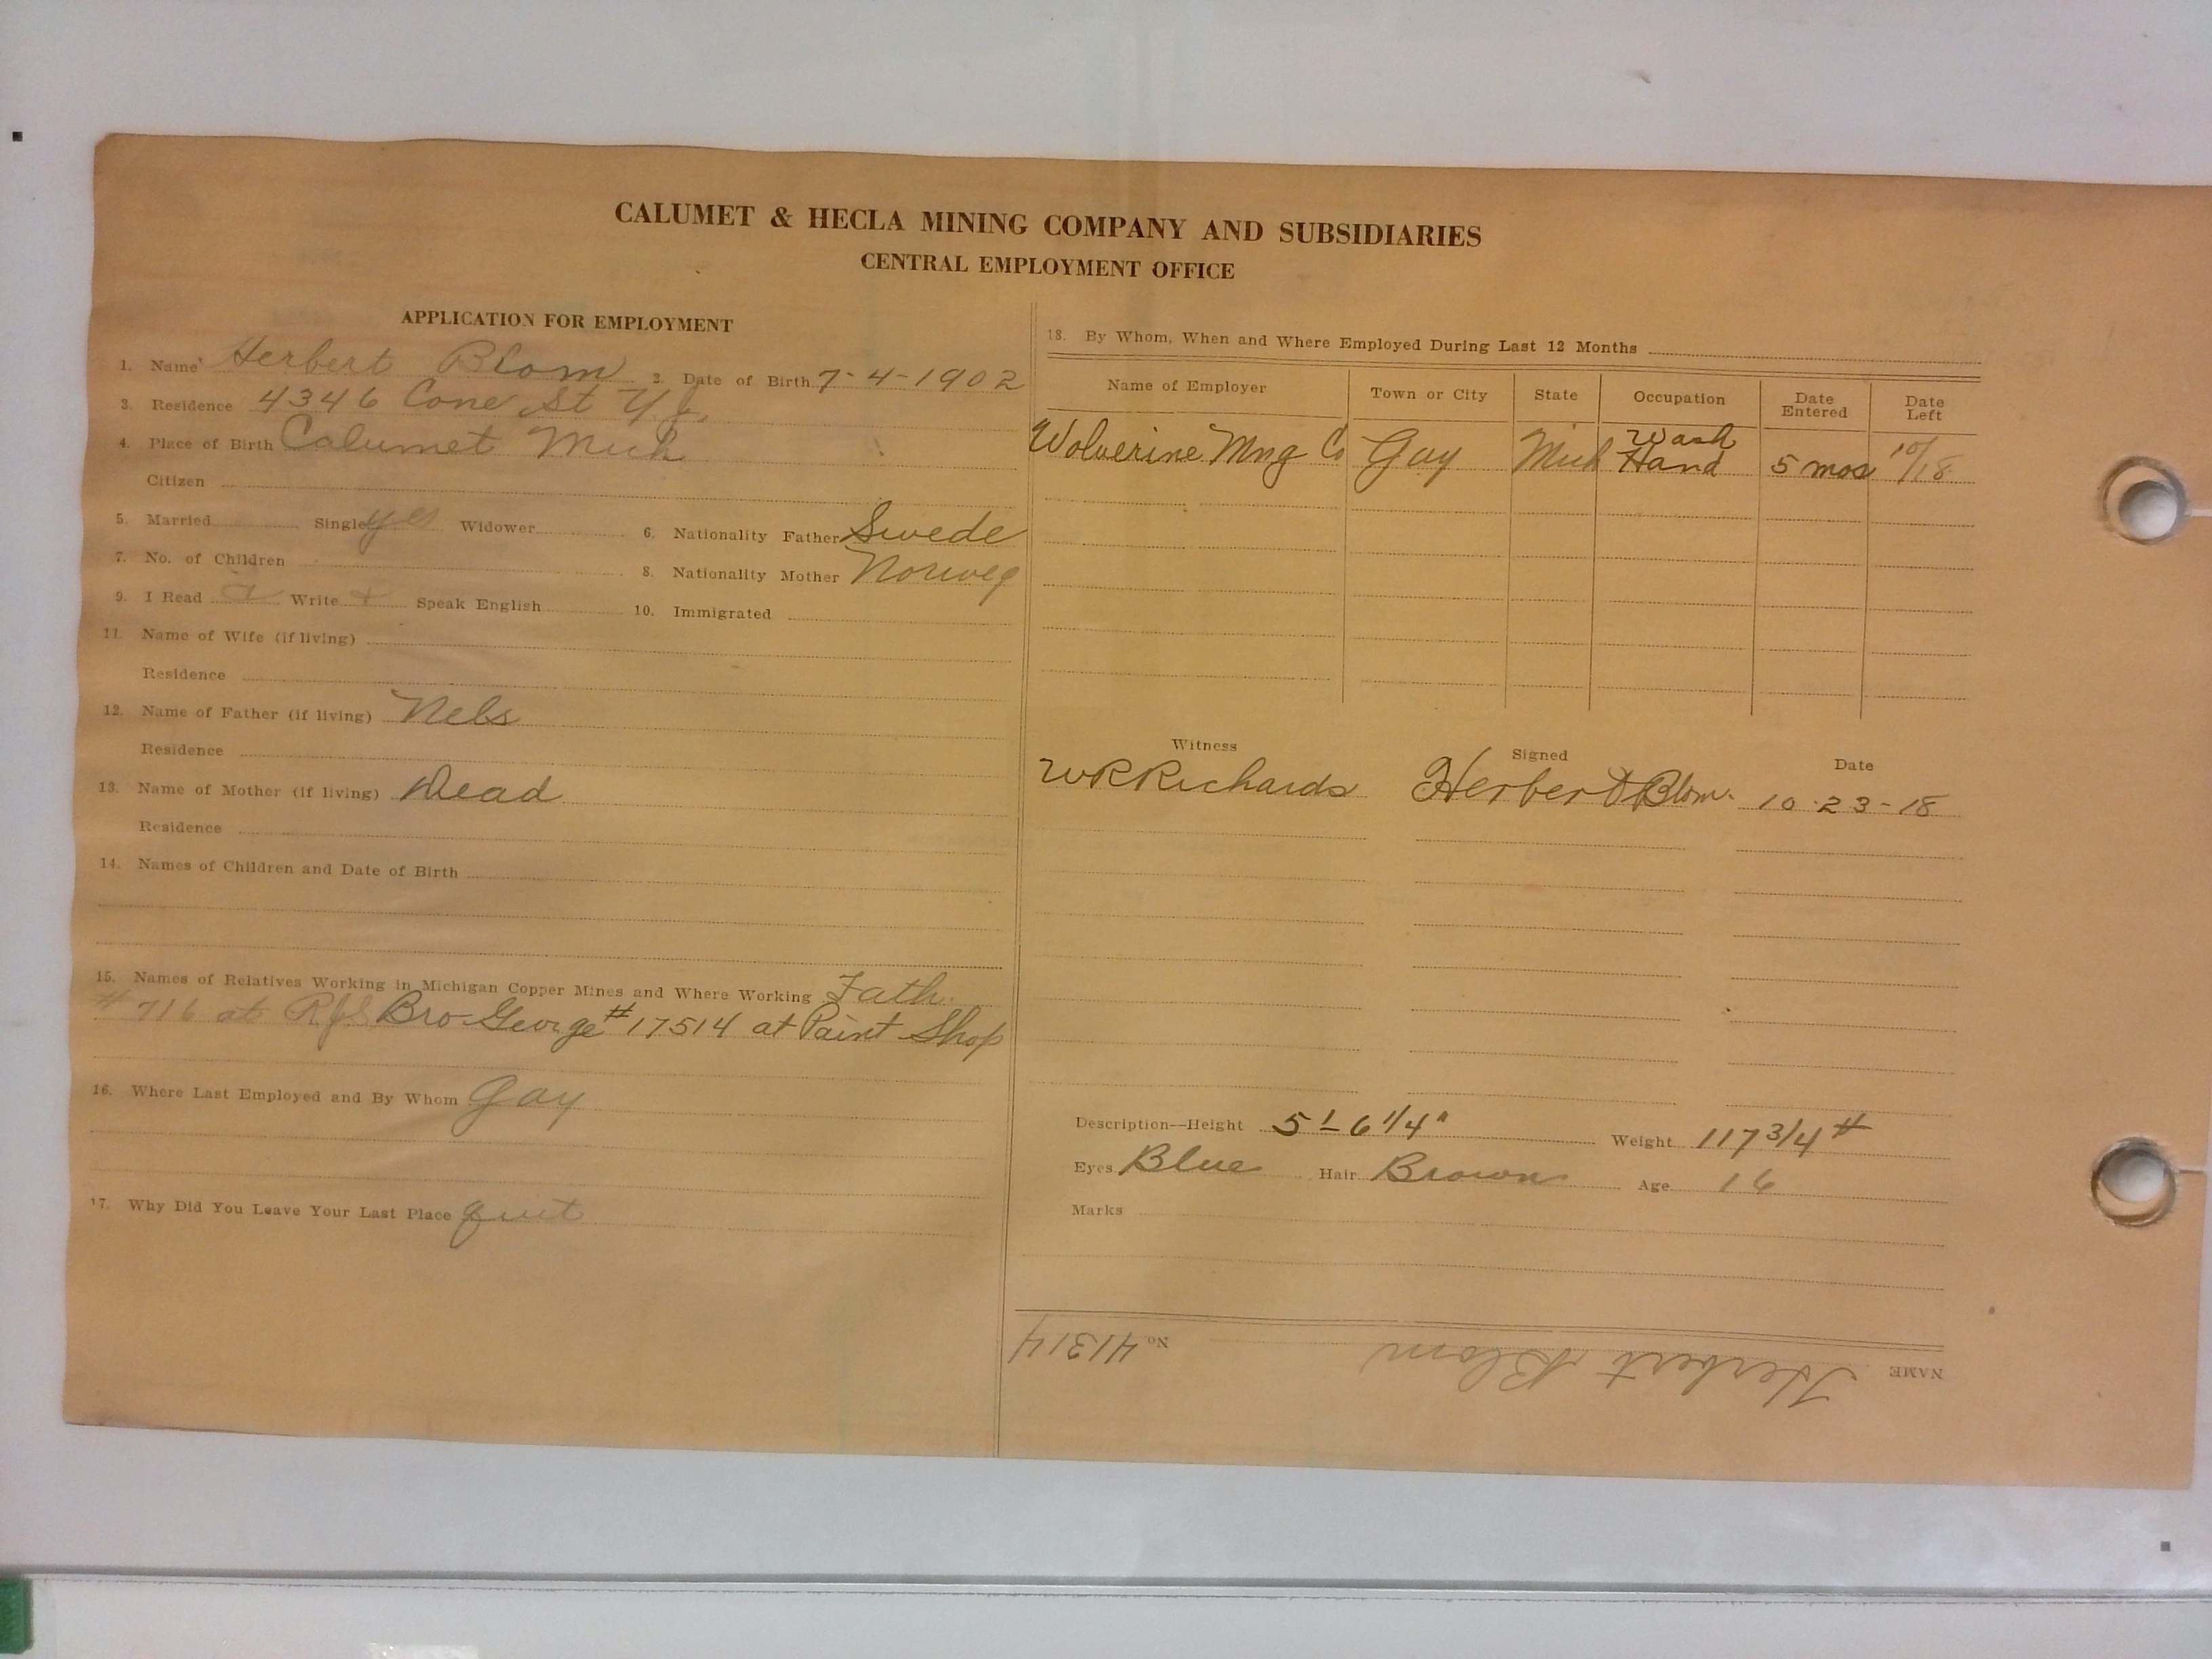 CALUMET & HECLA MINING COMPANY AND SUBSIDIARIES
CENTRAL EMPLOYMENT OFFICE
APPLICATION FOR EMPLOYMENT
1. Name Herbert Blom 2. Date of Birth 7-4-1902
3. Residence 4346 Cone St Y.J.
4. Place of Birth Calumet Mich
Citizen
5. Married Single yes Widower 6. Nationality Father Swede
7. No. of Children 8. Nationality Mother Norweg
9. I Read Write Speak English 10. Immigrated
11. Name of Wife (if living)
Residence
12. Name of Father (if living) Nels
Residence
13. Name of Mother (if living) Dead
Residence
14. Names of Children and Date of Birth
15. Names of Relatives Working in Michigan Copper Mines and Where Working Fath.
#716 at Bro George #17514 at Paint Shop
16. Where Last Employed and By Whom Gay
17. Why Did You Leave Your Last Place quit
18. By Whom, When and Where Employed During Last 12 Months
Name of Employer Town or City State Occupation Date Entered Date Left
Wolverine Mng Co Gay Mich Wash Hand 5 mos 10/18
Witness Signed Date
WR Richards Herbert Blom. 10-23-18
Description--Height 5'-6 1/4" Weight 117 3/4 #
Eyes Blue Hair Brown Age 16
Marks
NAME Herbert Blom No. 41314